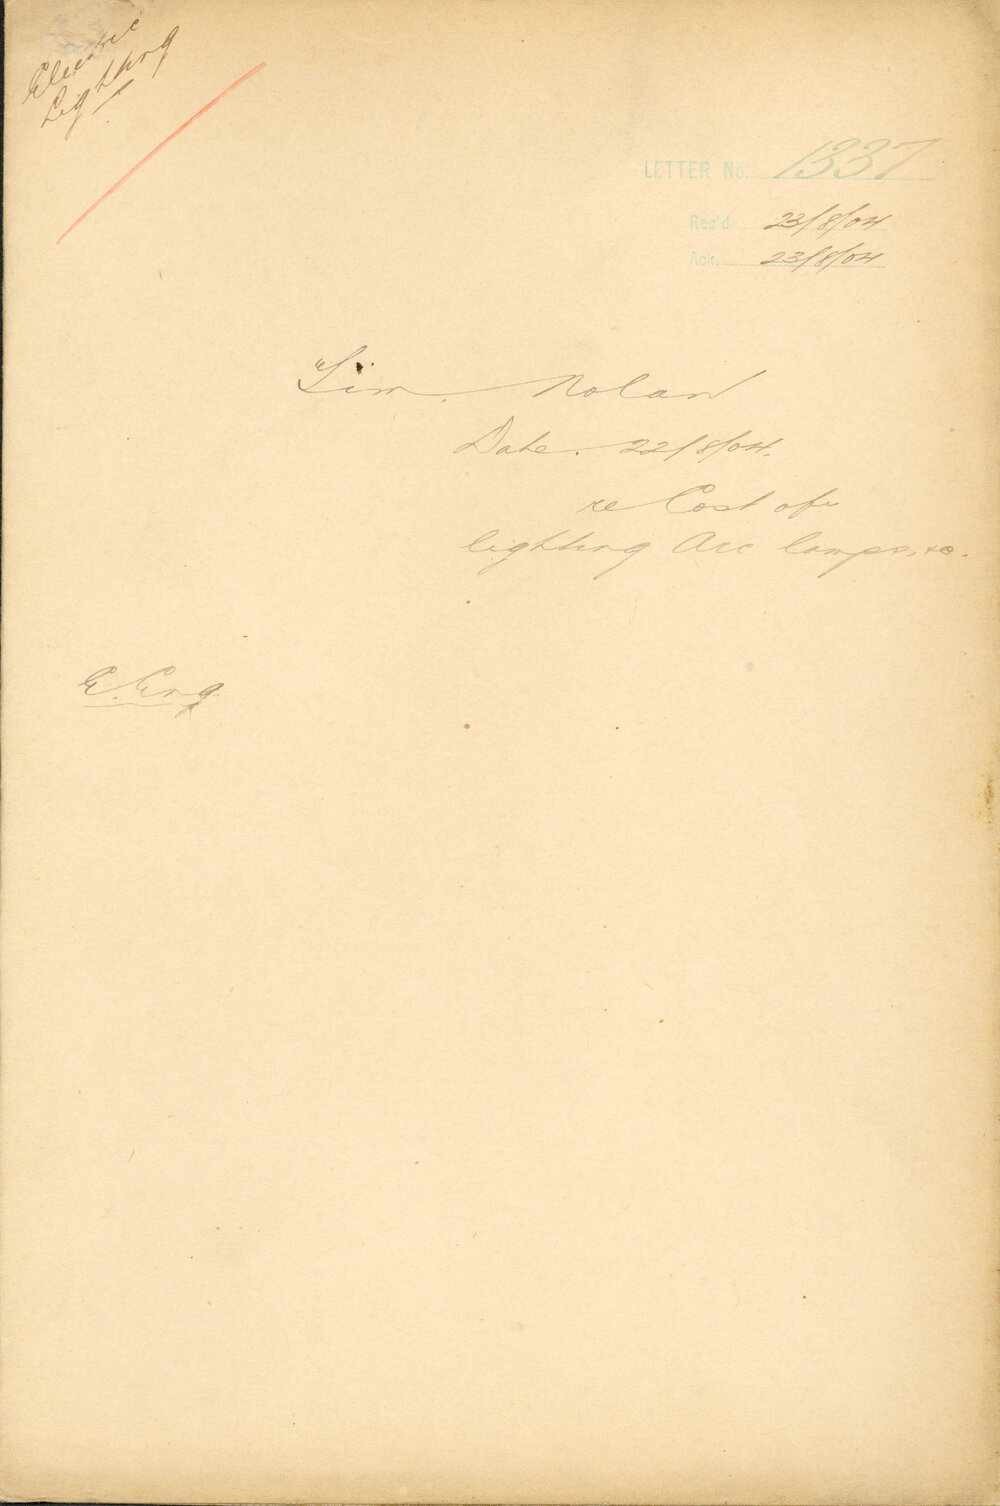 Electric
Lighting
LETTER No. 1337
Rec'd 23/8/04
Ack. 23/8/04
Nolan
Date. 22/8/04.
re Cost of
lighting Arc lamps, &c.
E. Eng